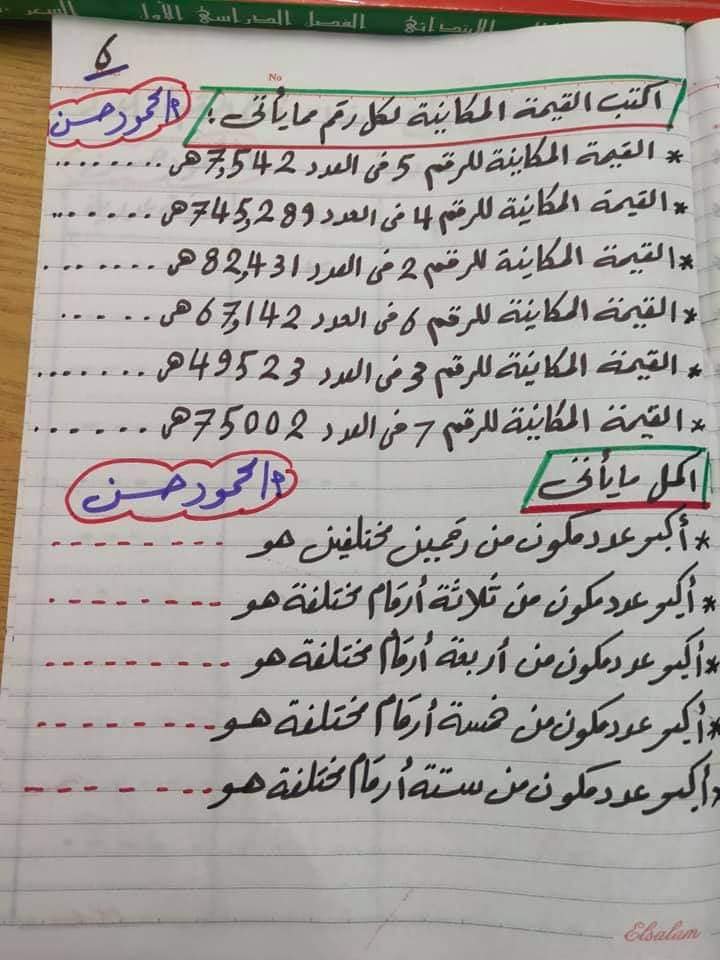 الابتدائي الفصل الدراسي الأول السعر
6
No
اكتب القيمة المكانية لكل رقم مما يأتى :
م/محمود حسن
* القيمة المكانية للرقم 5 فى العدد 7,542 هى ........
* القيمة المكانية للرقم 4 فى العدد 745,289 هى .......
* القيمة المكانية للرقم 2 فى العدد 82,431 هى ........
* القيمة المكانية للرقم 6 فى العدد 67,142 هى .....
* القيمة المكانية للرقم 3 فى العدد 49523 هى .......
* القيمة المكانية للرقم 7 فى العدد 75002 هى ......
اكمل ما يأتى
م/محمود حسن
* أكبر عدد مكون من رقمين مختلفين هو --------
* أكبر عدد مكون من ثلاثة أرقام مختلفة هو --------
* أكبر عدد مكون من أربعة أرقام مختلفة هو --------
* أكبر عدد مكون من خمسة أرقام مختلفة هو --------
* أكبر عدد مكون من ستة أرقام مختلفة هو --------
Elsalam